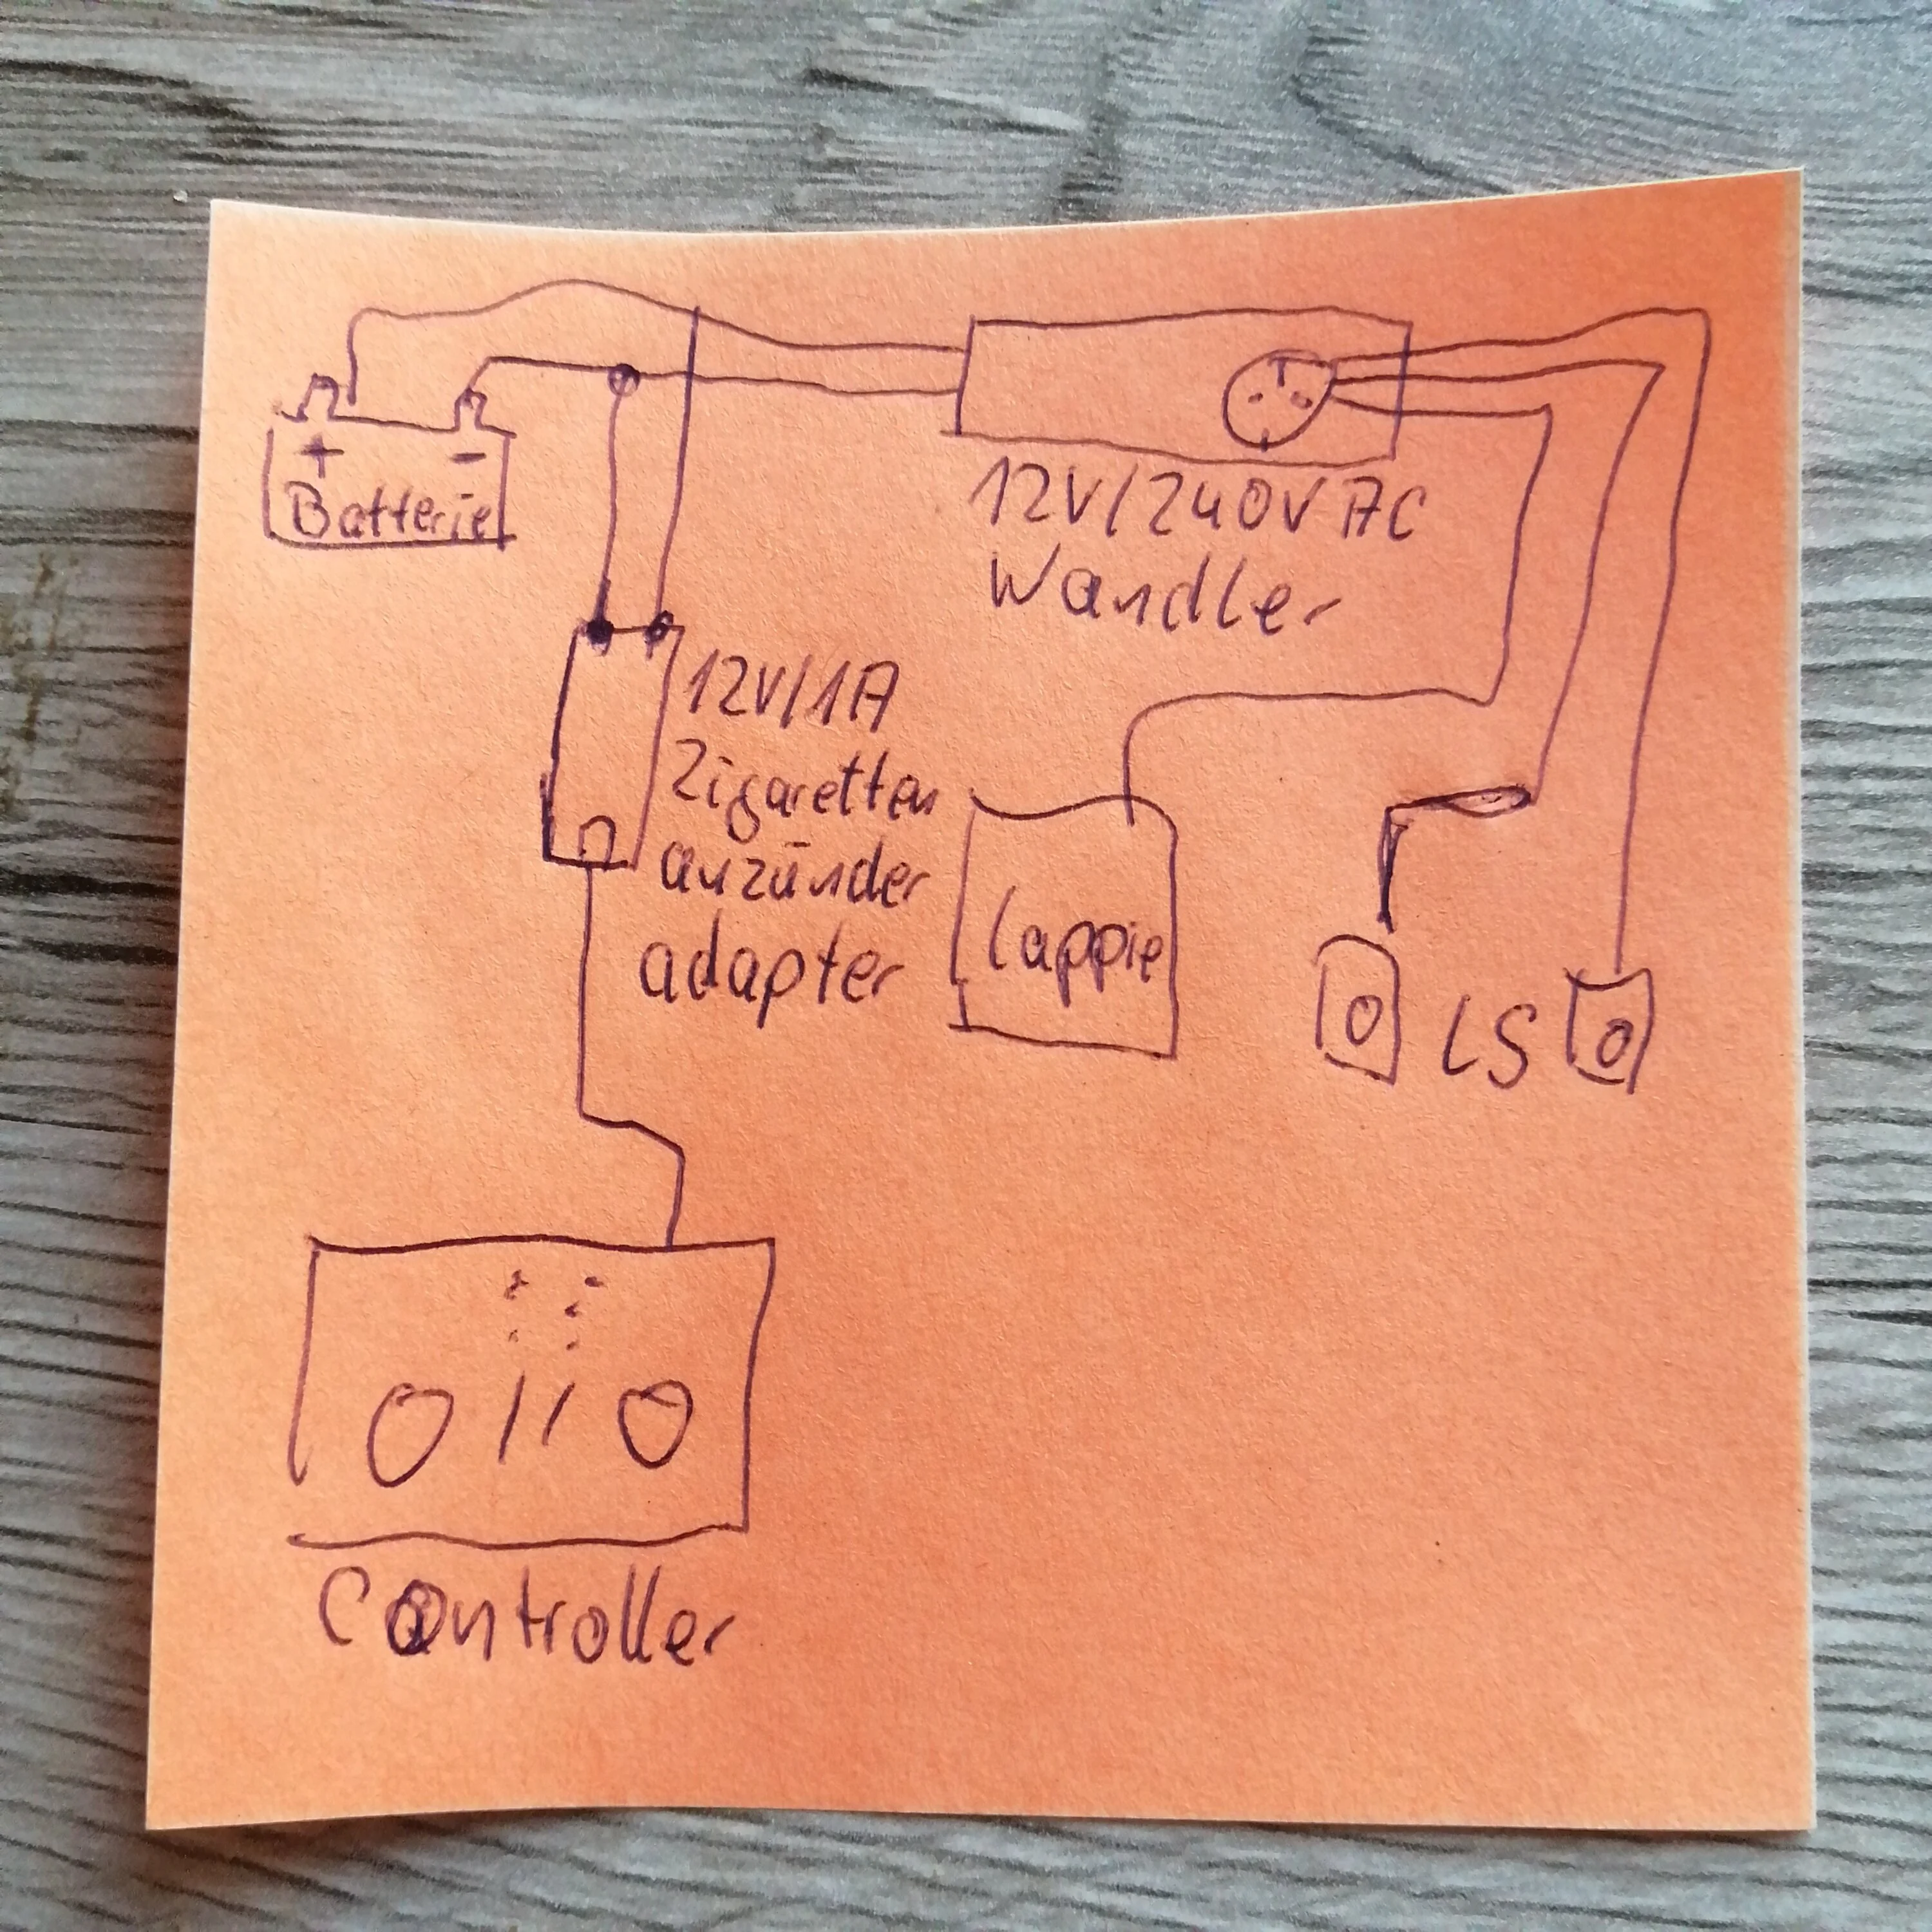 + -
Batterie
12V/240V AC
Wandler
12V/1A
Zigaretten
anzünder
adapter
Lappie
LS
Controller